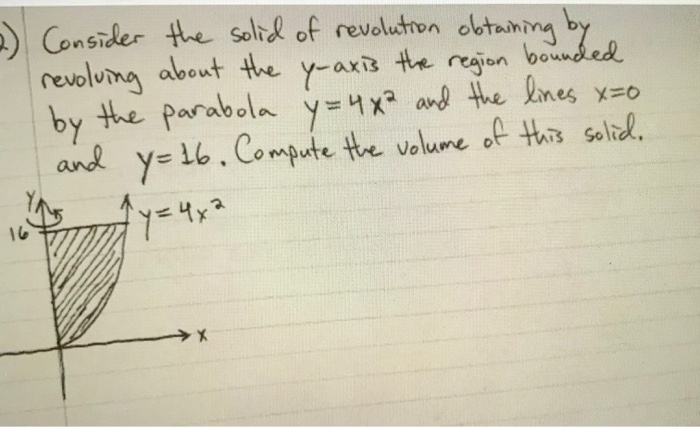 2) Consider the solid of revolution obtaining by
revolving about the y-axis the region bounded
by the parabola y=4x² and the lines x=0
and y=16. Compute the volume of this solid.
y
y=4x²
16
x